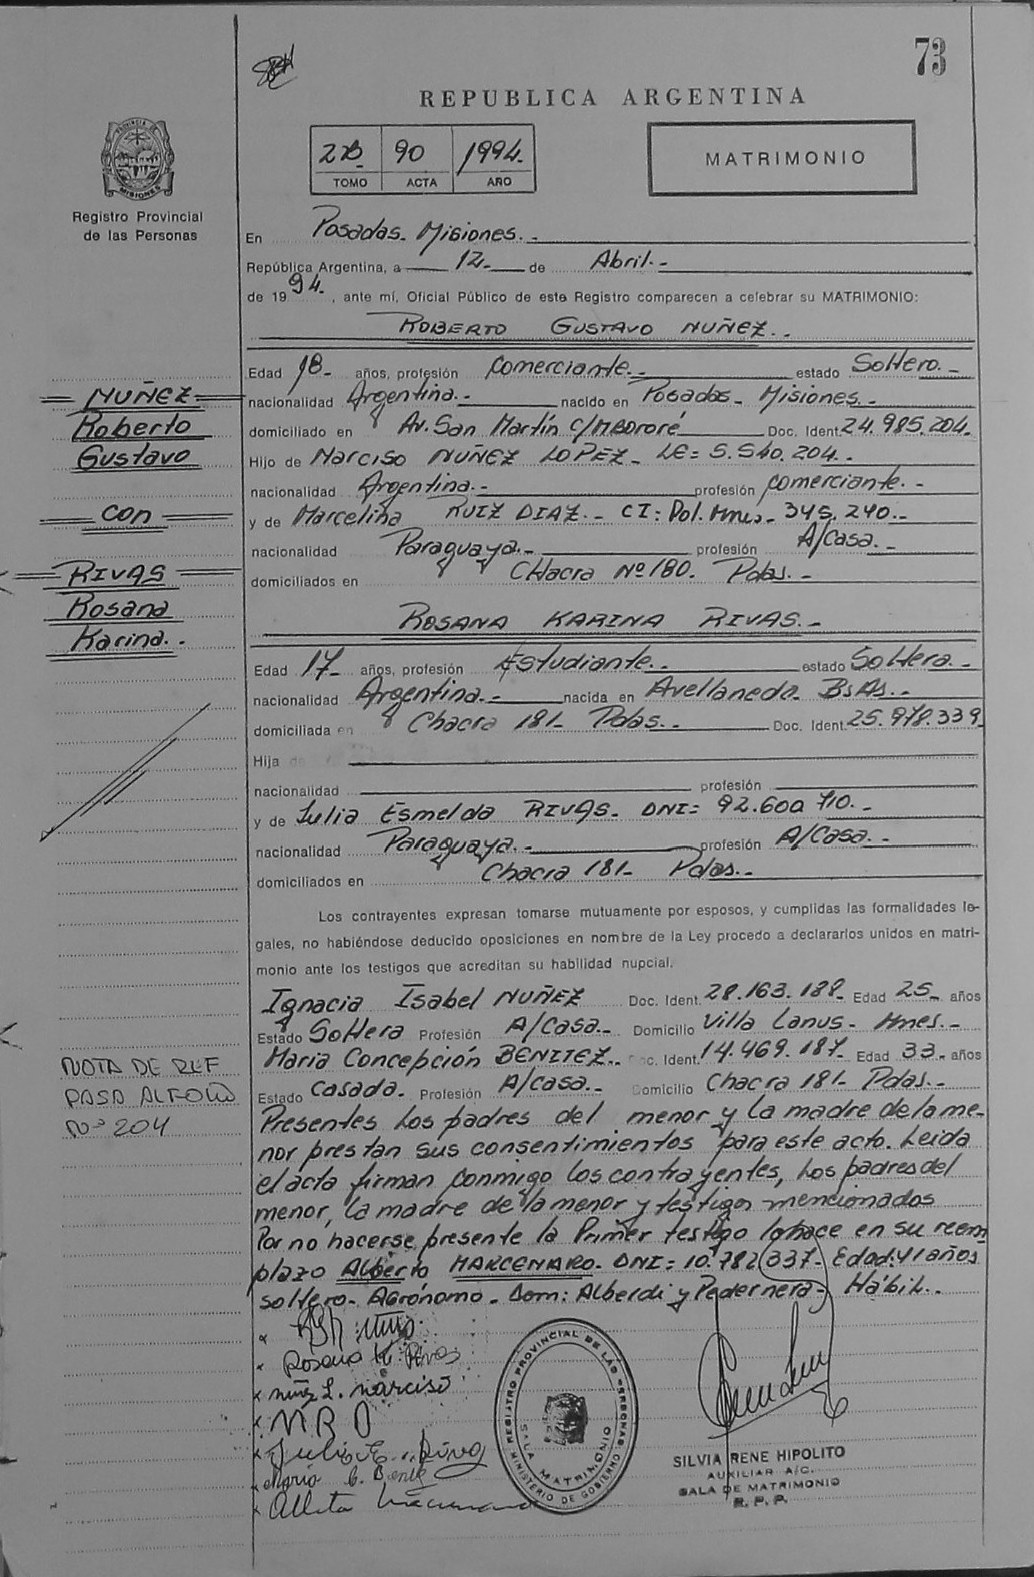 73
REPUBLICA ARGENTINA
90 1994.-
TOMO ACTA AÑO
MATRIMONIO
PROVINCIA DE MISIONES
Registro Provincial
de las Personas
En Posadas.- Misiones.-
República Argentina, a 12.- de Abril.-
de 1994.-, ante mí, Oficial Público de este Registro comparecen a celebrar su MATRIMONIO:
ROBERTO GUSTAVO NUÑEZ.-
Edad 18- años, profesión Comerciante.- estado Soltero.-
NUÑEZ
nacionalidad Argentina.- nacido en Posadas- Misiones.-
Roberto
domiciliado en Av. San Martín c/Mbororé Doc. Ident. 24.985.204.
Gustavo
Hijo de Narciso NUÑEZ LOPEZ- LE: 5.540.204.-
nacionalidad Argentina.- profesión Comerciante.-
con
y de Marcelina RUIZ DIAZ.- CI: Pol. Mnes- 345.240.-
nacionalidad Paraguaya.- profesión A/Casa.-
RIVAS
domiciliados en Chacra Nº 180. Pdas.-
Rosana
ROSANA KARINA RIVAS.-
Karina.-
Edad 17- años, profesión Estudiante.- estado Soltera.-
nacionalidad Argentina.- nacida en Avellaneda- Bs As.-
domiciliada en Chacra 181- Pdas.- Doc. Ident. 25.978.339
Hija de
nacionalidad profesión
y de Julia Esmelda RIVAS. DNI: 92.600.710.-
nacionalidad Paraguaya.- profesión A/Casa.-
domiciliados en Chacra 181- Pdas.-
Los contrayentes expresan tomarse mutuamente por esposos, y cumplidas las formalidades le-
gales, no habiéndose deducido oposiciones en nombre de la Ley procedo a declararlos unidos en matri-
monio ante los testigos que acreditan su habilidad nupcial.
Ignacia Isabel NUÑEZ Doc. Ident. 28.163.188- Edad 25- años
Estado Soltera Profesión A/Casa.- Domicilio Villa Lanus- Mnes.-
Maria Concepción BENITEZ.- Doc. Ident. 14.469.187- Edad 33- años
Estado Casada- Profesión A/casa.- Domicilio Chacra 181- Pdas.-
NOTA DE REF
PASA AL FOLIO
Nº 204
Presentes Los padres del menor y La madre de la me-
nor prestan sus consentimientos para este acto. Leida
el acta firman conmigo Los contrayentes, Los padres del
menor, La madre de la menor y testigos mencionados
Por no hacerse presente la Primer testigo lo hace en su reem
plazo Alberto MARCENARO- DNI: 10.782.337- Edad: 41 años
soltero- Agrónomo- Dom: Alberdi y Pedernera- Hábil.-
Rosana K. Rivas
Nuñez L. Narciso
M R D
Julia E. Rivas
Maria C. Benitez
REGISTRO PROVINCIAL DE LAS PERSONAS
SALA MATRIMONIO
MINISTERIO DE GOBIERNO
SILVIA RENE HIPOLITO
AUXILIAR A/C.
SALA DE MATRIMONIO
R. P. P.